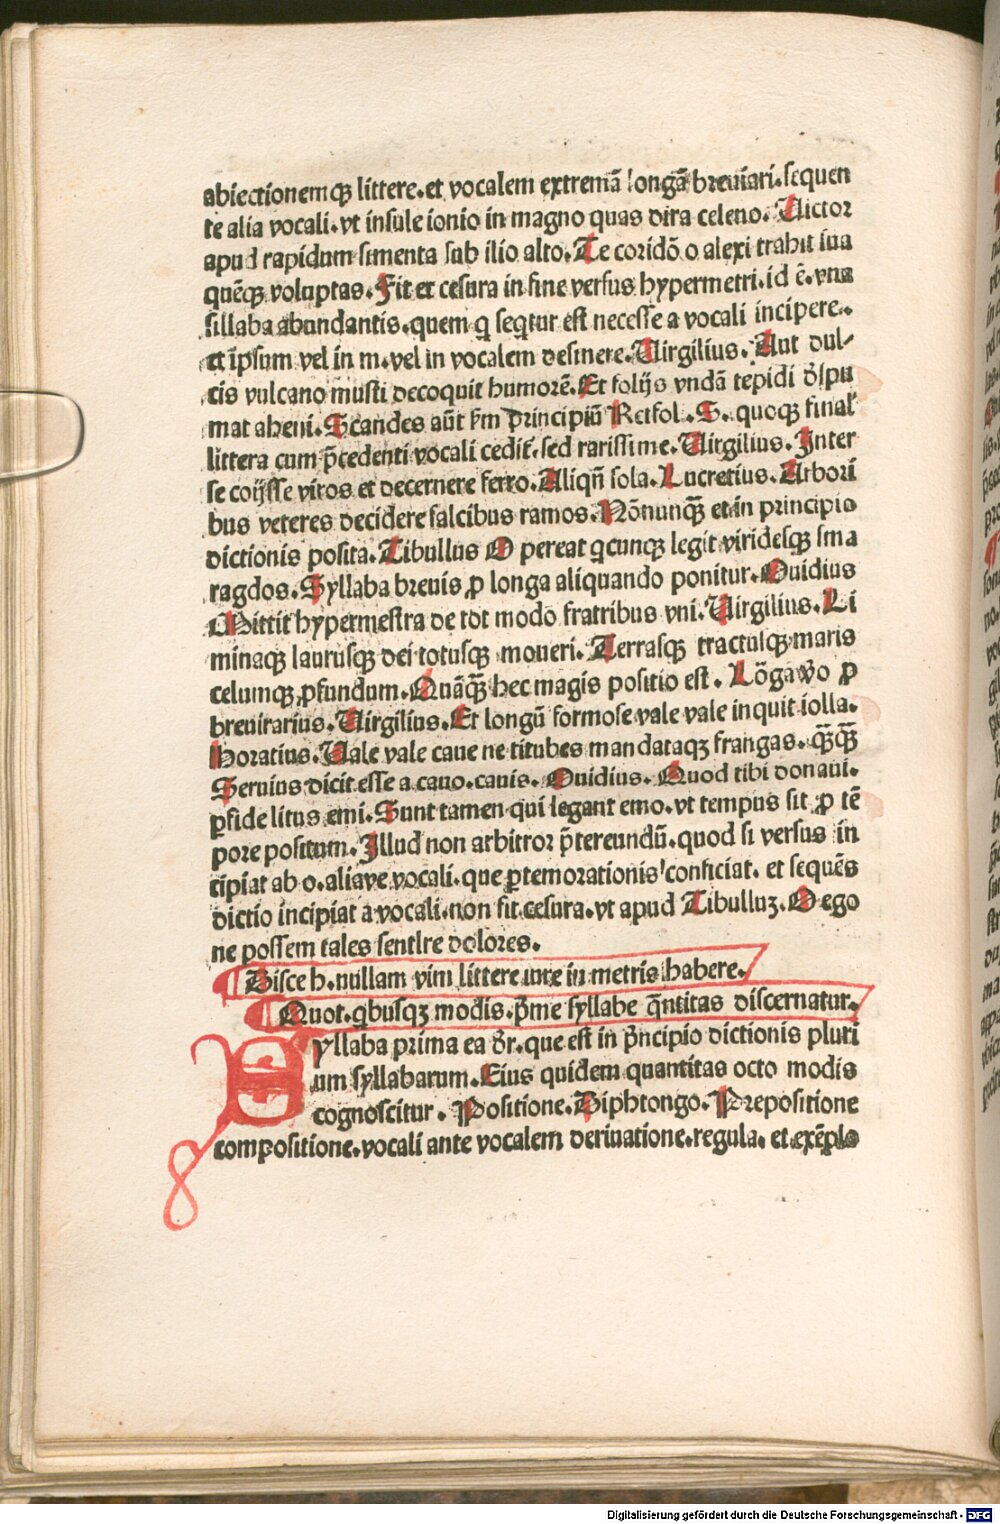 abiectionemqȝ littere. et vocalem extremā longā breuiari. sequen
te alia vocali. vt insule ionio in magno quas dira celeno. Uictor
apud rapidum simenta sub ilio alto. Te coridō o alexi trahit sua
quēqȝ voluptas. Fit et cesura in fine versus hypermetri. id ē. vna
sillaba abundantis. quem q seqtur est necesse a vocali incipere.
et ip̄sum vel in m. vel in vocalem desinere. Uirgilius. Aut dul⸗
cis vulcano musti decoquit humorē. Et folijs vndā tepidi d̄spu
mat aheni. Scandes aūt sm principiū Retfol. S. quoqȝ final̓
littera cum p̄cedenti vocali cedit. sed rarissime. Uirgilius. Inter
se coijsse viros et decernere ferro. Aliqn̄ sola. Lucretius. Arbori
bus veteres decidere falcibus ramos. Nōnunqȝ̄ et in principio
dictionis posita. Tibullus O pereat qcunqȝ legit viridesqȝ sma
ragdos. Syllaba breuis ꝓ longa aliquando ponitur. Ouidius
Mittit hypermestra de tot modo fratribus vni. Uirgilius. Li
minaqȝ laurusqȝ dei totusqȝ moueri. Terrasqȝ tractusqȝ maris
celumqȝ ꝓfundum. Quāqȝ̄ hec magis positio est. Lōga v̄o ꝓ
breui rarius. Uirgilius. Et longū formose vale vale inquit iolla.
Horatius. Uale vale caue ne titubes mandataqȝ frangas. qȝ̄qȝ̄
Seruius dicit esse a cauo. cauis. Ouidius. Quod tibi donaui.
ꝑfide litus emi. Sunt tamen qui legant emo. vt tempus sit ꝓ tē
pore positum. Illud non arbitror p̄tereundū. quod si versus in
cipiat ab o. aliave vocali. que ꝑtem orationis conficiat. et sequēs
dictio incipiat a vocali. non fit cesura. vt apud Tibulluȝ. O ego
ne possem tales sentire dolores.
Disce h. nullam vim littere iure in metris habere.
Quot. qbusqȝ modis. p̄me syllabe q̄ntitas discernatur.
Syllaba prima ea d̄r. que est in p̄ncipio dictionis pluri
um syllabarum. Eius quidem quantitas octo modis
cognoscitur. Positione. Diphtongo. Prepositione
compositione. vocali ante vocalem deriuatione. regula. et exēplo
Digitalisierung gefördert durch die Deutsche Forschungsgemeinschaft - DFG